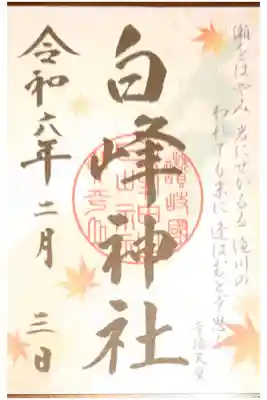 瀬をはやみ 岩にせかるる 滝川の
われても末に 逢はむとぞ思ふ
崇徳天皇
白峰神社
令和六年二月
三日